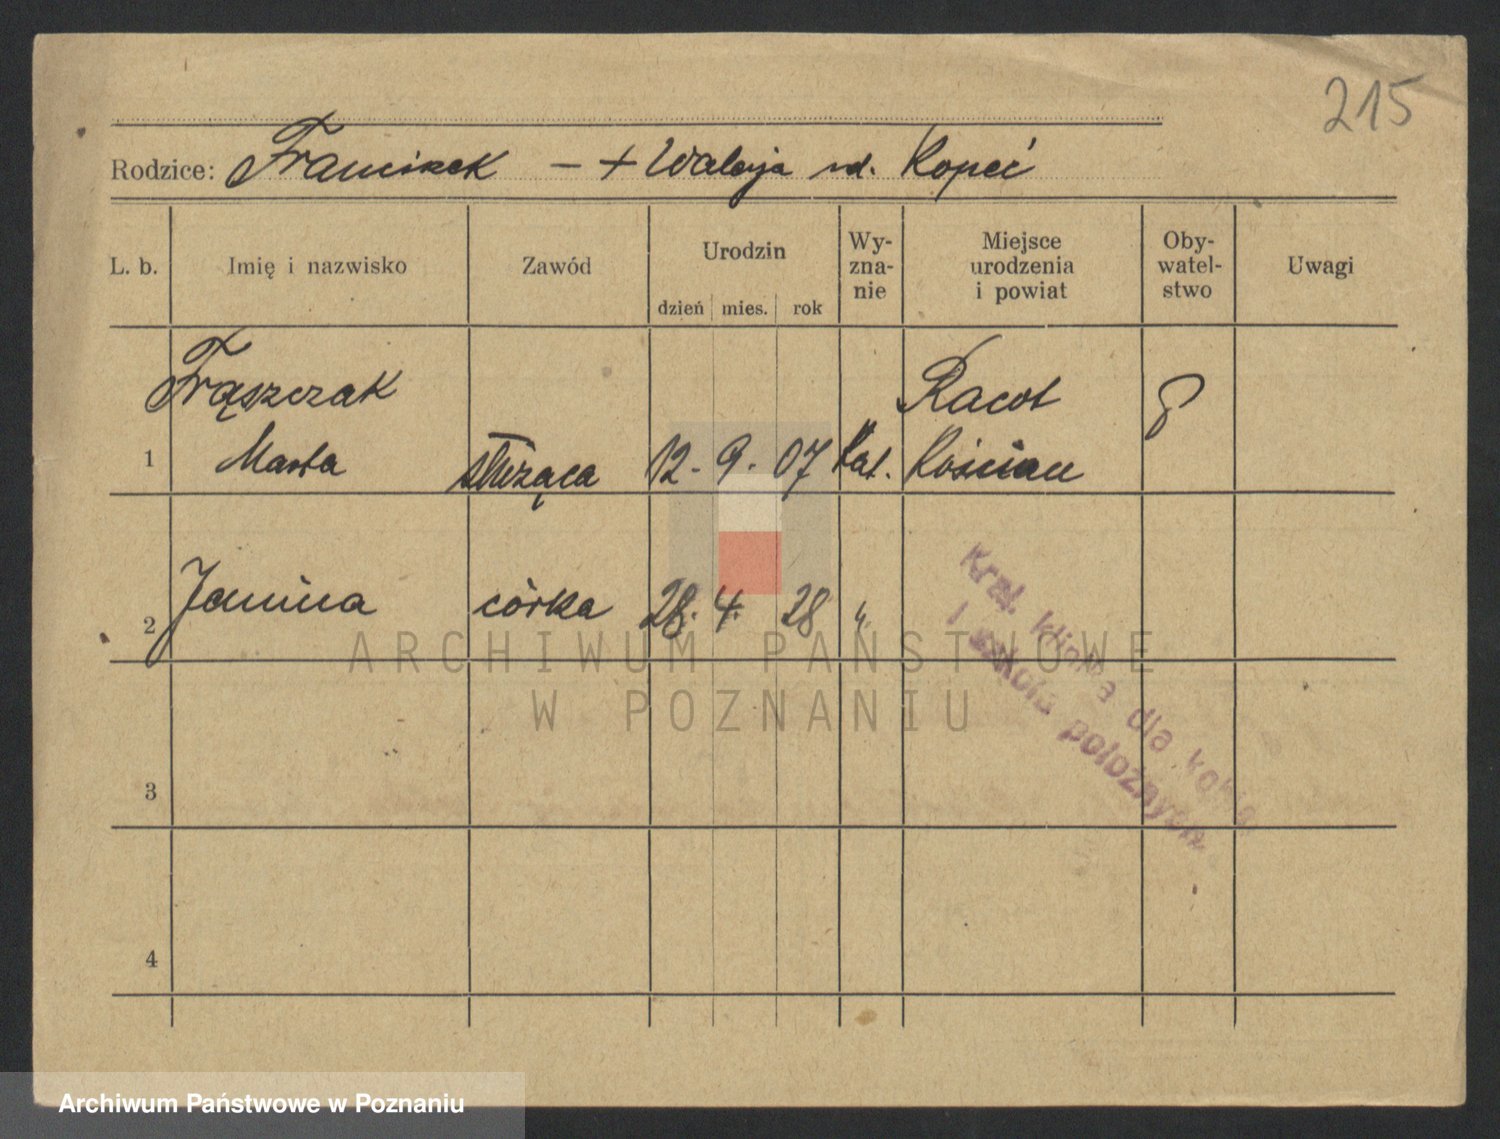 215
Rodzice: Franciszek – + Walerja rd. Kopeć
L. b. Imię i nazwisko Zawód Urodzin dzień mies. rok Wy-zna-nie Miejsce urodzenia i powiat Oby-watel-stwo Uwagi
Frąszczak Racot
1 Marta służąca 12. 9. 07 Kat. Kościan
2 Janina córka 28. 4. 28 "
3
4
Kraj. klinika dla kobiet
i szkoła położnych
ARCHIWUM PAŃSTWOWE
W POZNANIU
Archiwum Państwowe w Poznaniu